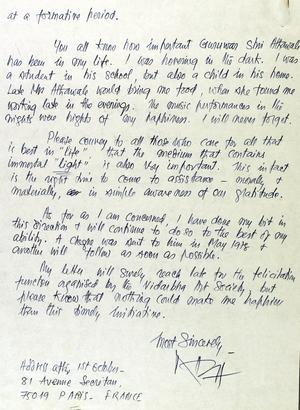 at a formative period.
You all know how important Gururvar Shri Athavale
has been in my life. I was hovering in the dark. I was
a student in his school, but also a child in his home.
Late Mrs Athavale would bring me food, when she found me
working late in the evenings. The music performances in the
nights were heights of my happiness. I will never forget.
Please convey to all those who care for all that
is best in "life" that the medium that contains
immortal "light" is also very important. This in fact
is the right time to come to assistance – morally,
materially, in simple awareness of our gratitude.
As far as I am concerned I have done my bit in
this direction & will continue to do so to the best of my
ability. A cheque was sent to him in May 1978 &
another will follow as soon as possible.
My letter will surely reach late for the felicitation
function organised by the Vidarbha Art Society, but
please know that nothing could make me happier
than this timely initiative.
Most Sincerely,
Address after 1st October-
81 Avenue Secretan,
75019 PARIS - FRANCE